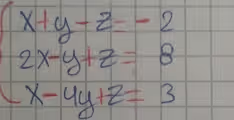 x+y-z=-2
2x-y+z=8
x-4y+z=3